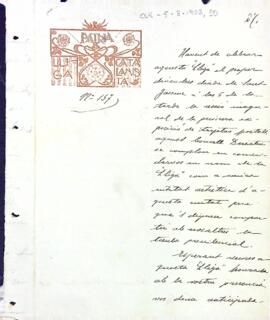 CLK-5-8-1903, 20
PATRIA
LLIGA
CATALA
NISTA
Nº 137
Havent de celebrar
aquesta "Lliga" el proper
diumenge
Jaume a les 5 de la
tarde la sessió inaugu-
ral de la primera ex-
posició de tarjetas postals
aquest Consell Directiu
se complau en convi-
darvos en nom de la
"Lliga" com a
entitat artística d'a-
questa ciutat per
que's digneu compar-
tir ab nosaltres la
taula presidencial.
Esperant veures a-
questa "Lliga" honrada
ab la vostra presencia
vos dona anticipada-